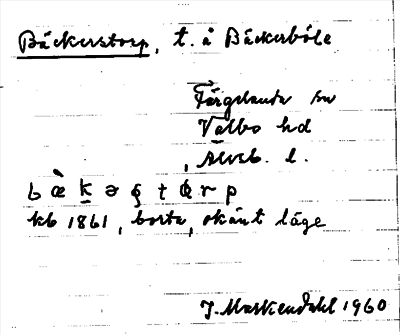 Bäckerstorp, t. å Bäckerböle
Färgelanda sn
Valbo hd
, Älvsb. l.
kb 1861, borta, okänt läge
J. Markendahl 1960